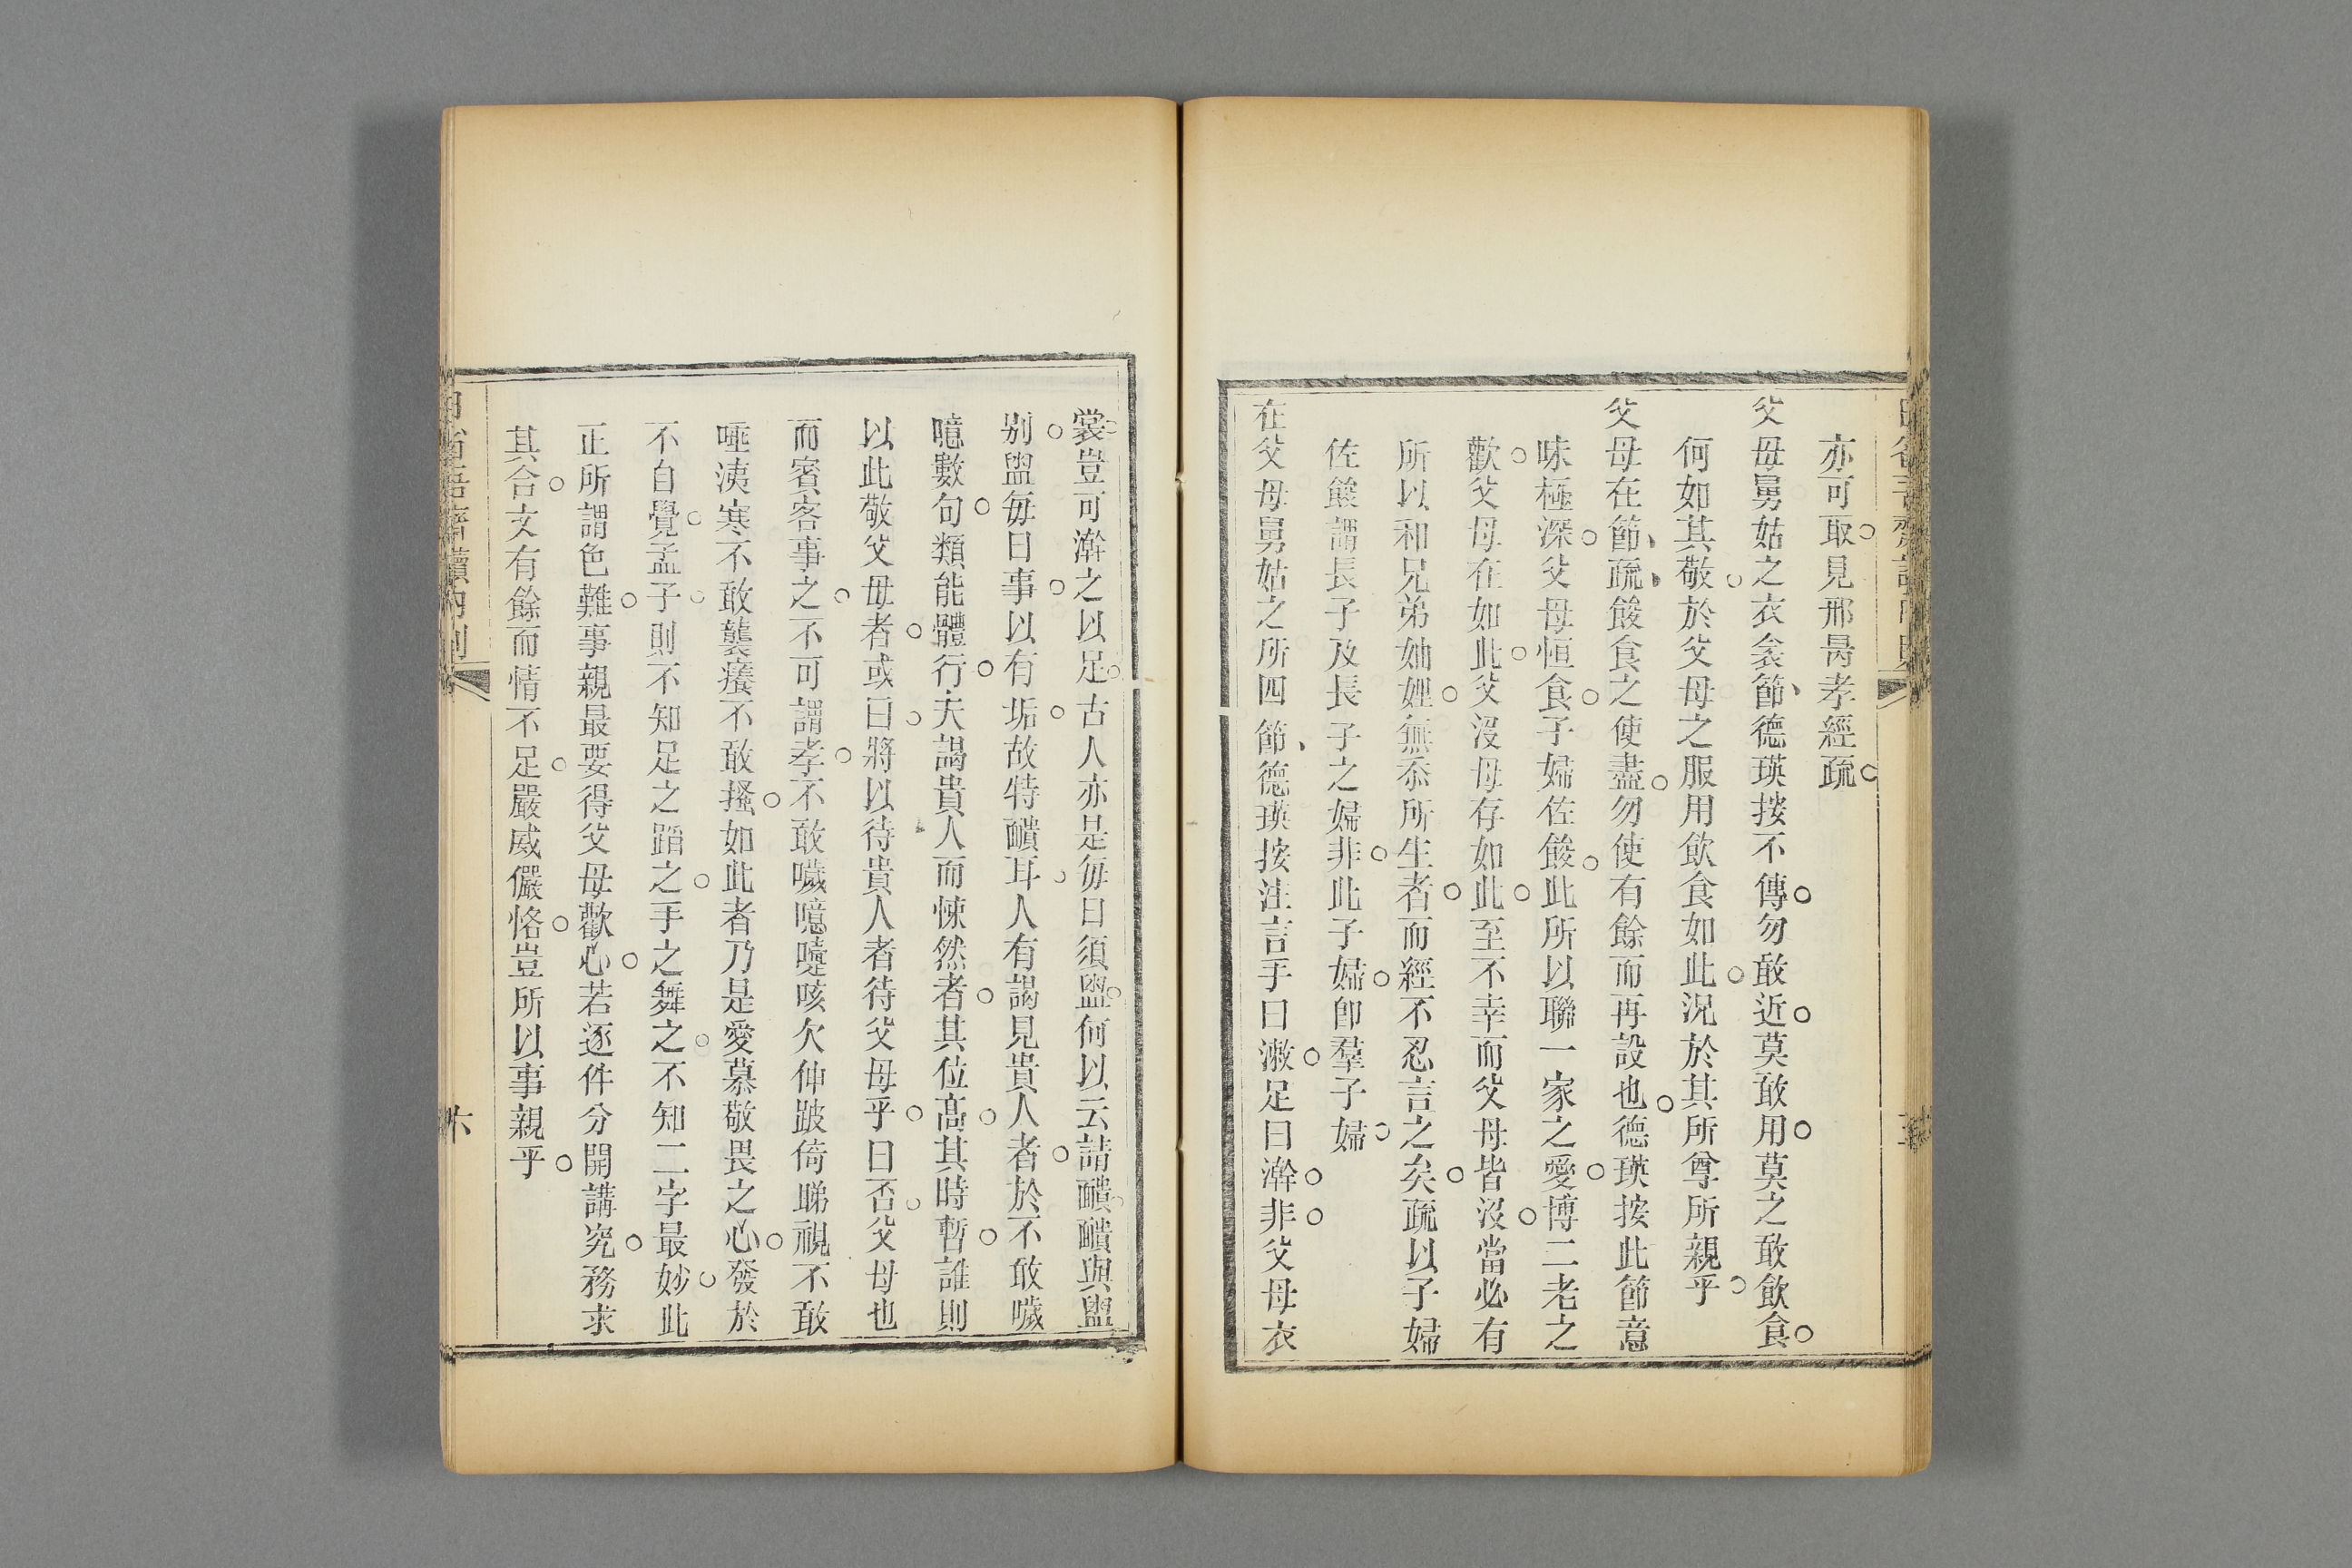 亦可取見邢昺孝經疏
父母舅姑之衣衾節德瑛按不傳勿敢近莫敢用莫之敢飲食
何如其敬於父母之服用飲食如此況於其所尊所親乎
父母在節疏餕食之使盡勿使有餘而再設也德瑛按此節意
味極深父母恒食子婦佐餕此所以聯一家之愛博二老之
歡父母在如此父沒母存如此至不幸而父母皆沒當必有
所以和兄弟妯娌無忝所生者而經不忍言之矣疏以子婦
佐餕謂長子及長子之婦非此子婦卽羣子婦
在父母舅姑之所四節德瑛按注言手曰漱足曰澣非父母衣
裳豈可澣之以足古人亦是每日須盥何以云請靧靧與盥
别盥每日事以有垢故特靧耳人有謁見貴人者於不敢噦
噫數句類能體行夫謁貴人而悚然者其位高其時暫誰則
以此敬父母者或曰將以待貴人者待父母乎曰否父母也
而賓客事之不可謂孝不敢噦噫嚏咳欠伸跛倚睇視不敢
唾洟寒不敢襲癢不敢搔如此者乃是愛慕敬畏之心發於
不自覺孟子則不知足之蹈之手之舞之不知二字最妙此
正所謂色難事親最要得父母歡心若逐件分開講究務求
其合文有餘而情不足嚴威儼恪豈所以事親乎
六